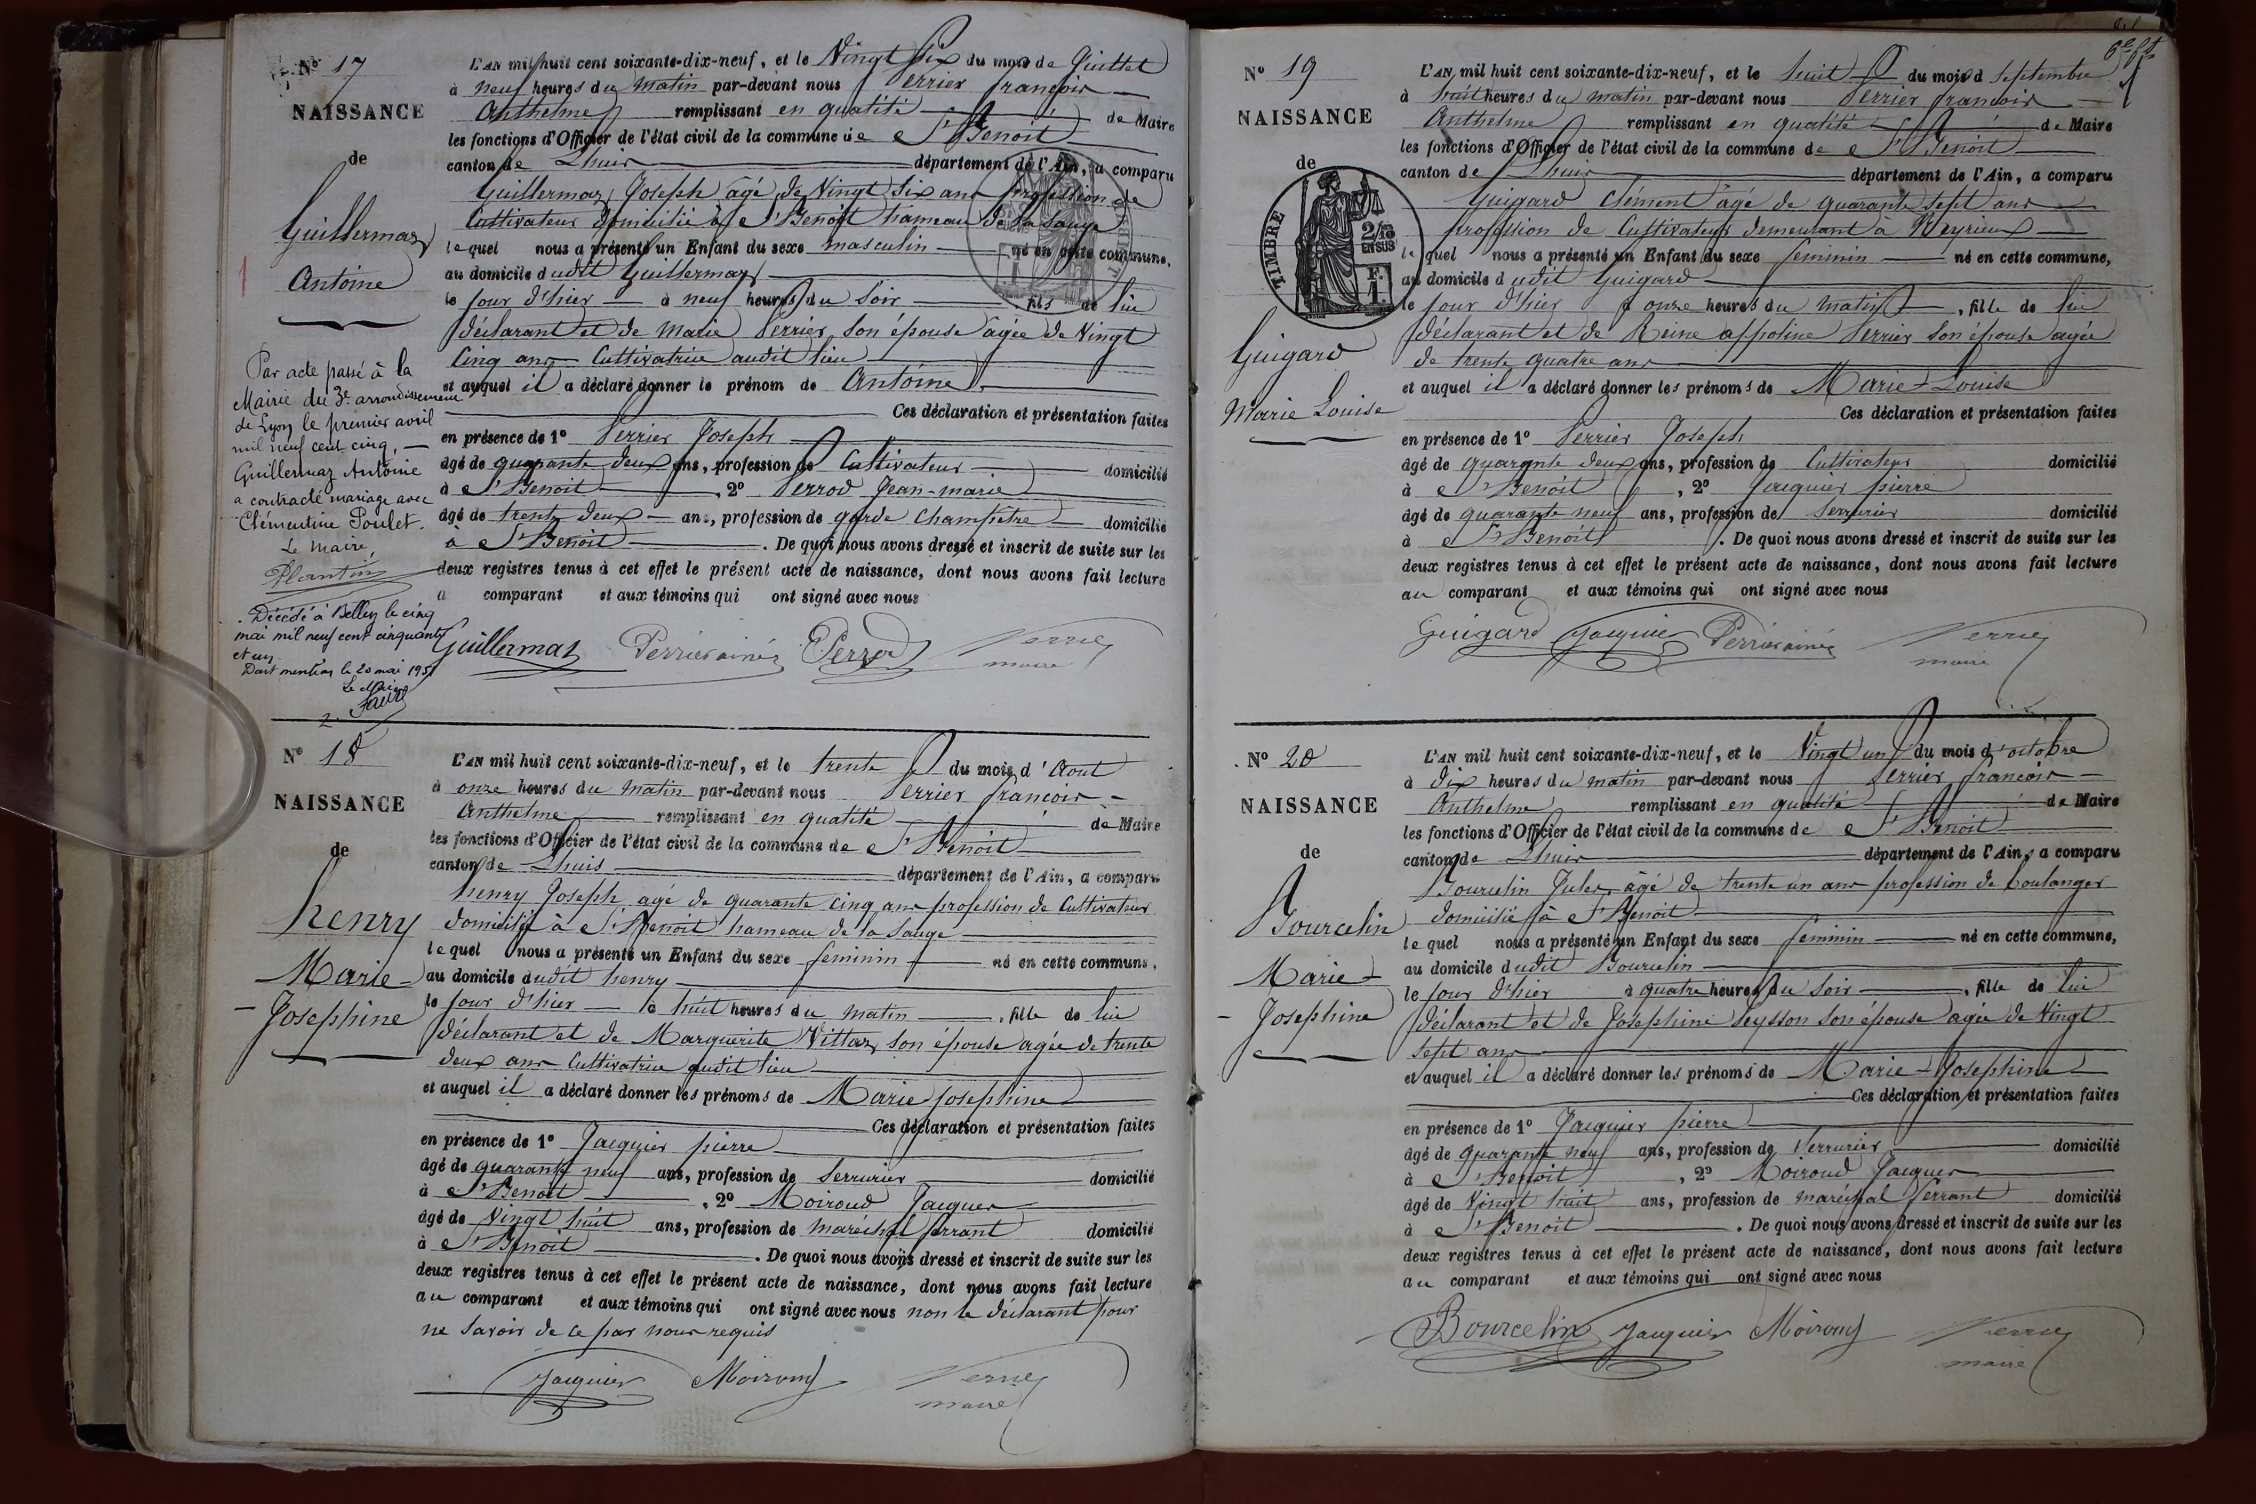 N° 17
NAISSANCE
de
Guillermaz
Antoine
Par acte passé à la
Mairie du 3e arrondissement
de Lyon le premier avril
mil neuf cent cinq, —
Guillermaz Antoine
a contracté mariage avec
Clémentine Poulet.
Le Maire,
Plantin
Décédé à Belley le cinq
mai mil neuf cent cinquante
et un.
Dont mention le 20 mai 1951
Le Maire
Favre
L'AN mil huit cent soixante-dix-neuf, et le Vingt Six du mois de Juillet
à neuf heures du matin par-devant nous Perrier françois —
Anthelme remplissant en qualité de Maire
les fonctions d'Officier de l'état civil de la commune de St Benoit
canton de Lhuis département de l'Ain, a comparu
Guillermaz Joseph âgé de Vingt Six ans profession de
Cultivateur domicilié à St Benoit hameau de la Sauge
lequel nous a présenté un Enfant du sexe masculin né en cette commune,
au domicile dudit Guillermaz
le jour d'hier à neuf heures du Soir fils de lui
déclarant et de Marie Perrier son épouse âgée de Vingt
Cinq ans Cultivatrice audit lieu
et auquel il a déclaré donner le prénom de Antoine
Ces déclaration et présentation faites
en présence de 1° Perrier Joseph
âgé de quarante deux ans, profession de Cultivateur domicilié
à St Benoit, 2° Perrod Jean-marie
âgé de trente deux ans, profession de garde Champêtre domicilié
à St Benoit. De quoi nous avons dressé et inscrit de suite sur les
deux registres tenus à cet effet le présent acte de naissance, dont nous avons fait lecture
au comparant et aux témoins qui ont signé avec nous
Guillermaz Perrier ainé Perrod Perrier
maire
N° 18
NAISSANCE
de
henry
Marie-
Josephine
L'AN mil huit cent soixante-dix-neuf, et le trente du mois d'Aout
à onze heures du matin par-devant nous Perrier françois —
Anthelme remplissant en qualité de Maire
les fonctions d'Officier de l'état civil de la commune de St Benoit
canton de Lhuis département de l'Ain, a comparu
henry Joseph âgé de quarante cinq ans profession de Cultivateur
domicilié à St Benoit hameau de la Sauge
lequel nous a présenté un Enfant du sexe feminin né en cette commune,
au domicile dudit henry
le jour d'hier à huit heures du matin, fille de lui
déclarant et de Marguerite Vittaz son épouse âgée de trente
deux ans Cultivatrice audit lieu
et auquel il a déclaré donner les prénoms de Marie josephine
Ces déclaration et présentation faites
en présence de 1° Jacquier pierre
âgé de quarante neuf ans, profession de Serrurier domicilié
à St Benoit, 2° Moiroud Jacques
âgé de Vingt huit ans, profession de maréchal ferrant domicilié
à St Benoit. De quoi nous avons dressé et inscrit de suite sur les
deux registres tenus à cet effet le présent acte de naissance, dont nous avons fait lecture
au comparant et aux témoins qui ont signé avec nous non le déclarant pour
ne savoir de ce par nous requis
Jacquier Moiroud Perrier
maire
N° 19
NAISSANCE
de
TIMBRE
2/10
EN SUS
F.
1.
Guigard
Marie Louise
L'AN mil huit cent soixante-dix-neuf, et le huit du mois d Septembre
à huit heures du matin par-devant nous Perrier françois
Anthelme remplissant en qualité de Maire
les fonctions d'Officier de l'état civil de la commune de St Benoit
canton de Lhuis département de l'Ain, a comparu
Guigard Clément âgé de quarante Sept ans
profession de Cultivateur demeurant à Neyrieux
lequel nous a présenté un Enfant du sexe feminin né en cette commune,
au domicile dudit Guigard
le jour d'hier à onze heures du matin, fille de lui
déclarant et de Reine appoline Perrier Son épouse agée
de trente quatre ans
et auquel il a déclaré donner les prénoms de Marie-Louise
Ces déclaration et présentation faites
en présence de 1° Perrier Joseph
âgé de quarante deux ans, profession de Cultivateur domicilié
à St Benoit, 2° Jacquier pierre
âgé de quarante neuf ans, profession de Serrurier domicilié
à St Benoit. De quoi nous avons dressé et inscrit de suite sur les
deux registres tenus à cet effet le présent acte de naissance, dont nous avons fait lecture
au comparant et aux témoins qui ont signé avec nous
Guigard Jacquier Perrier ainé Perrier
maire
N° 20
NAISSANCE
de
Bourcelin
Marie-
Josephine
L'AN mil huit cent soixante-dix-neuf, et le Vingt un du mois d'octobre
à dix heures du matin par-devant nous Perrier françois —
Anthelme remplissant en qualité de Maire
les fonctions d'Officier de l'état civil de la commune de St Benoit
canton de Lhuis département de l'Ain, a comparu
Bourcelin Jules âgé de trente un ans profession de boulanger
domicilié à St Benoit
lequel nous a présenté un Enfant du sexe feminin né en cette commune,
au domicile dudit Bourcelin
le jour d'hier à quatre heures du Soir, fille de lui
déclarant et de Josephine Peysson son épouse agée de Vingt
Sept ans
et auquel il a déclaré donner les prénoms de Marie-Josephine
Ces déclaration et présentation faites
en présence de 1° Jacquier pierre
âgé de quarante neuf ans, profession de Serrurier domicilié
à St Benoit, 2° Moiroud Jacques
âgé de Vingt huit ans, profession de maréchal ferrant domicilié
à St Benoit. De quoi nous avons dressé et inscrit de suite sur les
deux registres tenus à cet effet le présent acte de naissance, dont nous avons fait lecture
au comparant et aux témoins qui ont signé avec nous
Bourcelin Jacquier Moiroud Perrier
maire